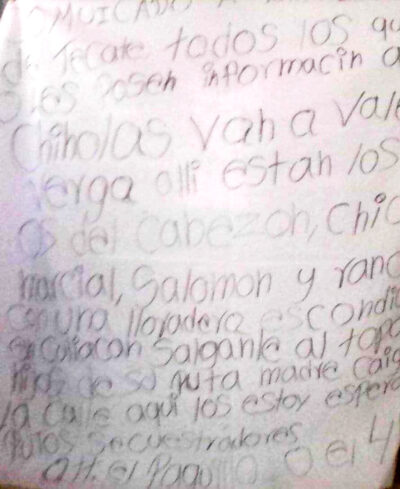 OMUICADO A
de Tecate todos los qu
o les pasen informacin a
Chiholas van a Vale
verga alli estan los
os del Cabezon, Chic
marcial, Salomon y ranc
con una lloradera escondi
en Culiacan Salganle al topo
hijos de su puta madre caig
la calle aqui los estoy espera
putos Secuestradores
Att. el Paqu o el 4